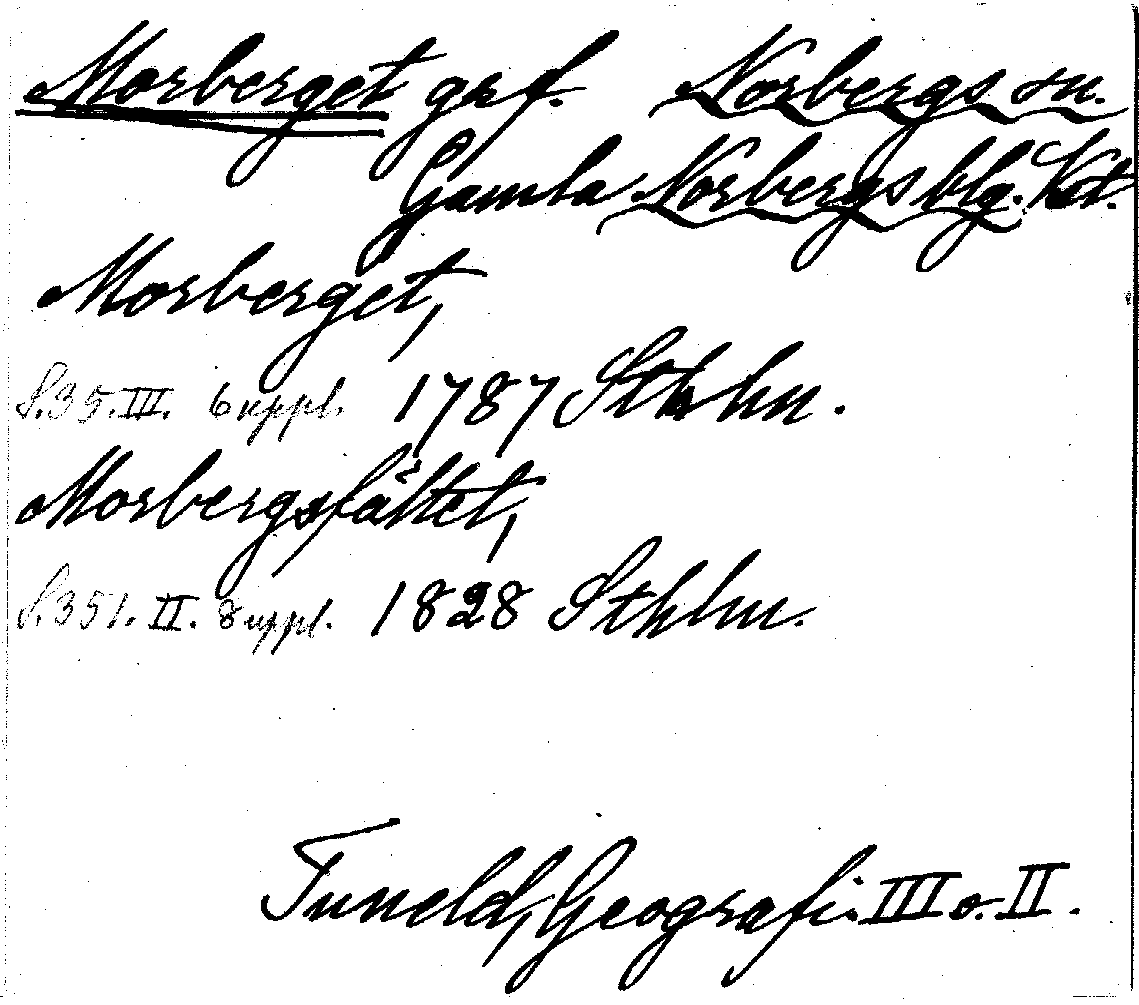 Morberget grf. Norbergs sn.
Gamla Norbergs blg. Vst.
Morberget,
S. 35. III. 6 uppl. 1787 Sthlm.
Morbergsfältet,
S. 351. II. 8 uppl. 1828 Sthlm.
Tuneld, Geografi. III o. II.